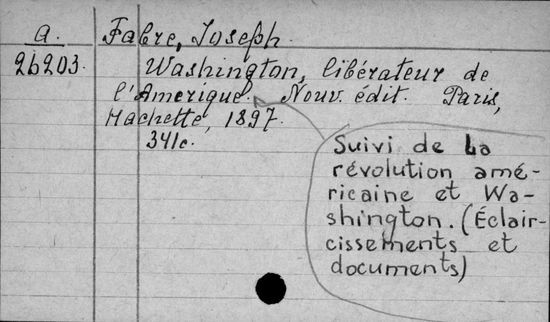 a. Fabre, Joseph.
26203. Washington, libérateur de
l'Amerique. Nouv. édit. Paris,
Hachette, 1897.
341c.
Suivi de la
révolution amé-
ricaine et Wa-
shington. (Éclair-
cissements et
documents)